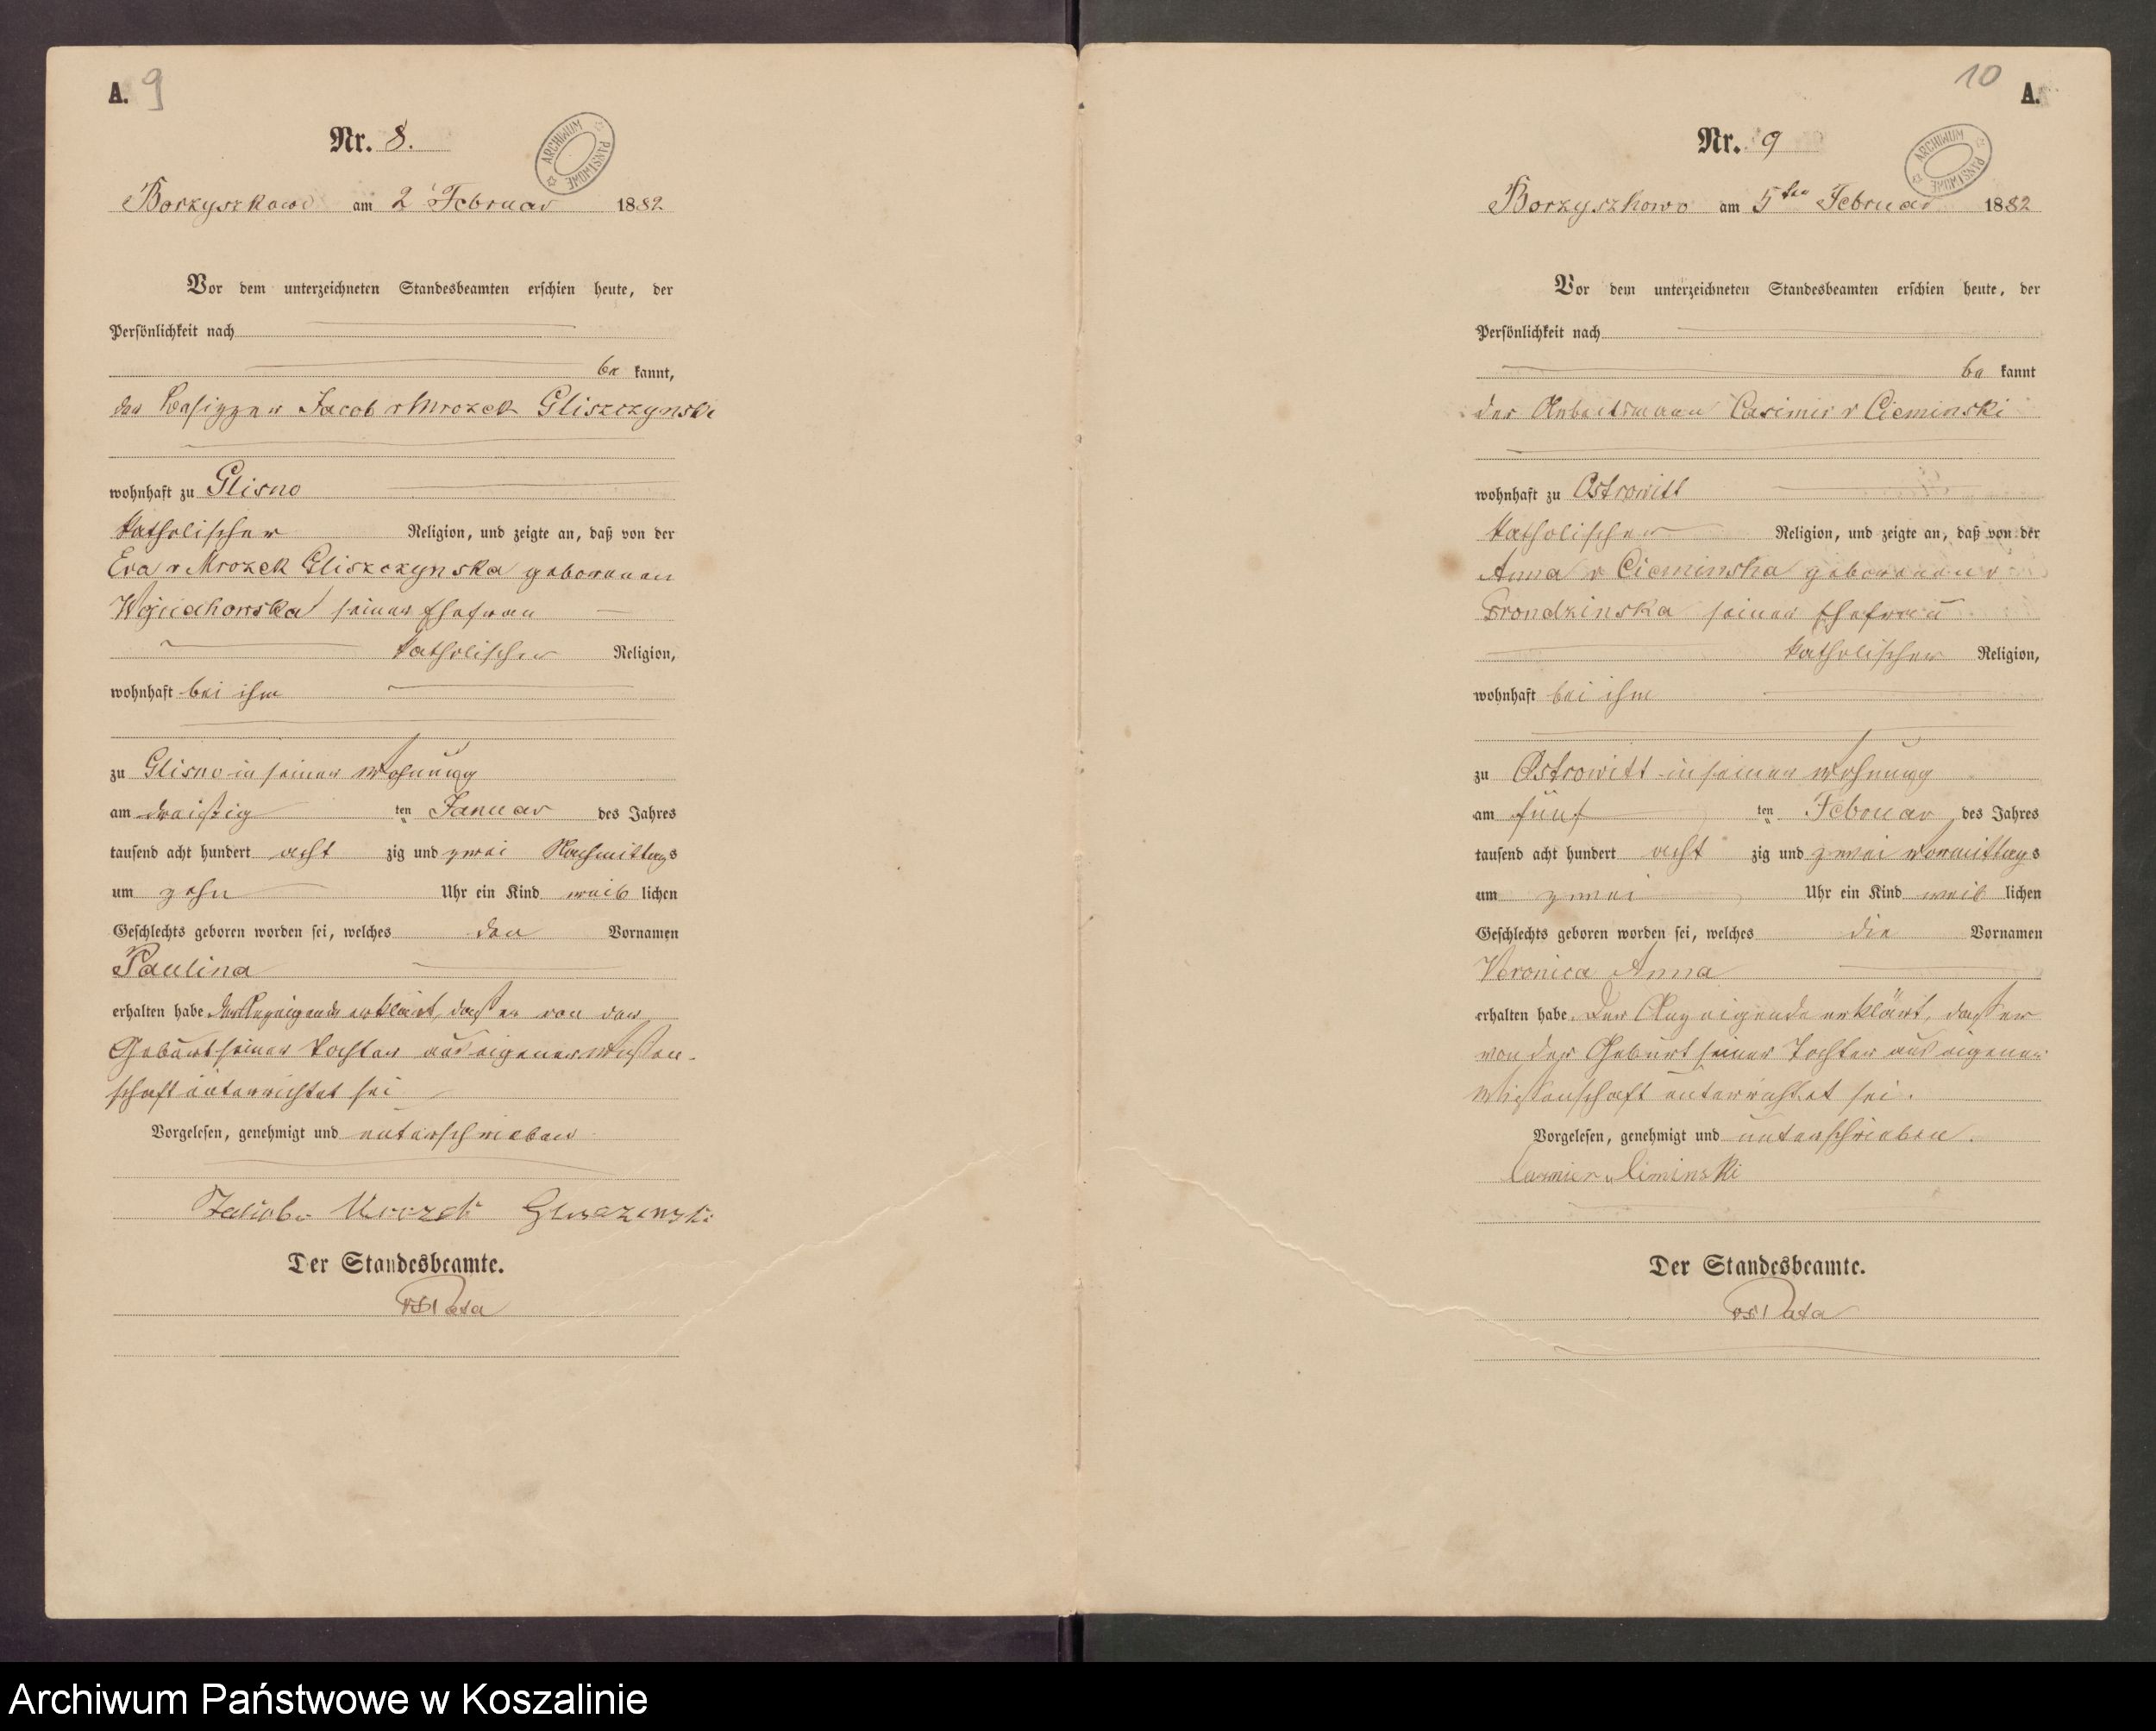 A. 9
Nr. 8.
ARCHIWUM PAŃSTWOWE
Borzyszkowo am 2 Februar 1882
Vor dem unterzeichneten Standesbeamten erschien heute, der
Persönlichkeit nach
be kannt,
der Besitzer Jacob v Mrozek Gliszczynski
wohnhaft zu Glisno
katholischer Religion, und zeigte an, daß von der
Eva v Mrozek Gliszczynska geborenen
seiner Ehefrau
katholischer Religion,
wohnhaft bei ihm
zu Glisno in seiner Wohnung
am dreißig ten Januar des Jahres
tausend acht hundert acht zig und zwei Nachmittags
um zehn Uhr ein Kind weib lichen
Geschlechts geboren worden sei, welches den Vornamen
Paulina
erhalten habe. Der Anzeigende erklärt, daß er von der
Geburt seiner Tochter aus eigener Wissen-
schaft unterrichtet sei
Vorgelesen, genehmigt und unterschrieben
Jakob v Mrozek
Der Standesbeamte.
10 A.
Nr. 9
ARCHIWUM PAŃSTWOWE
Borzyszkowo am 5ten Februar 1882
Vor dem unterzeichneten Standesbeamten erschien heute, der
Persönlichkeit nach
be kannt
der Arbeitsmann Casimir v Cieminski
wohnhaft zu Ostrowitt
katholischer Religion, und zeigte an, daß von der
Anna v Cieminska geborenen v
Prondzinska seiner Ehefrau
katholischer Religion,
wohnhaft bei ihm
zu Ostrowitt in seiner Wohnung
am fünf ten Februar des Jahres
tausend acht hundert acht zig und zwei Vormittags
um zwei Uhr ein Kind weib lichen
Geschlechts geboren worden sei, welches die Vornamen
Veronica Anna
erhalten habe. Der Anzeigende erklärt, daß er
von der Geburt seiner Tochter aus eigener
Wissenschaft unterrichtet sei.
Vorgelesen, genehmigt und unterschrieben.
Der Standesbeamte.
Archiwum Państwowe w Koszalinie